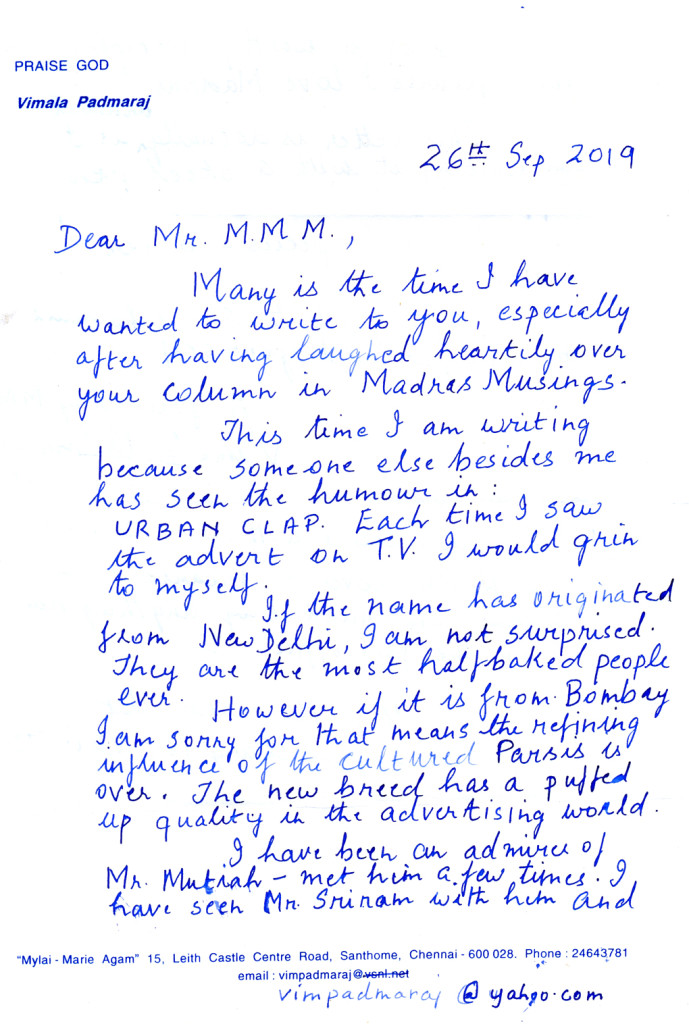 PRAISE GOD
Vimala Padmaraj
26th Sep 2019
Dear Mr. M.M M.,
Many is the time I have
wanted to write to you, especially
after having laughed heartily over
your column in Madras Musings.
This time I am writing
because someone else besides me
has seen the humour in :
URBAN CLAP. Each time I saw
the advert on T.V. I would grin
to myself.
If the name has originated
from New Delhi, I am not surprised.
They are the most halfbaked people
ever.
However if it is from Bombay
I am sorry for that means the refining
influence of the cultured Parsis is
over. The new breed has a puffed
up quality in the advertising world.
I have been an admirer of
Mr. Mutiah - met him a few times. I
have seen Mr. Sriram with him and
"Mylai - Marie Agam" 15, Leith Castle Centre Road, Santhome, Chennai - 600 028. Phone : 24643781
email : vimpadmaraj@vsnl.net
vimpadmaraj @ yahoo.com